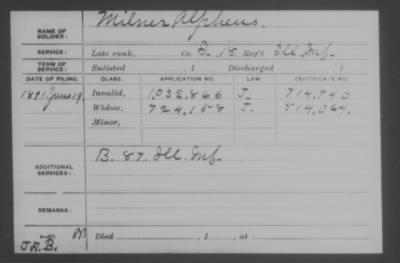 NAME OF SOLDIER: Milner Alpheus.
SERVICE: Late rank, Co. B. 18 Reg't Ill. Inf.
TERM OF SERVICE: Enlisted , 1 Discharged , 1
DATE OF FILING. CLASS. APPLICATION NO. LAW. CERTIFICATE NO.
1891 June 19 Invalid, 1,032,866 J. 714,740
Widow, 724,158 J. 514,064.
Minor,
ADDITIONAL SERVICES: B. 87. Ill. Inf.
REMARKS:
Died , 1 , at
J.A.B.